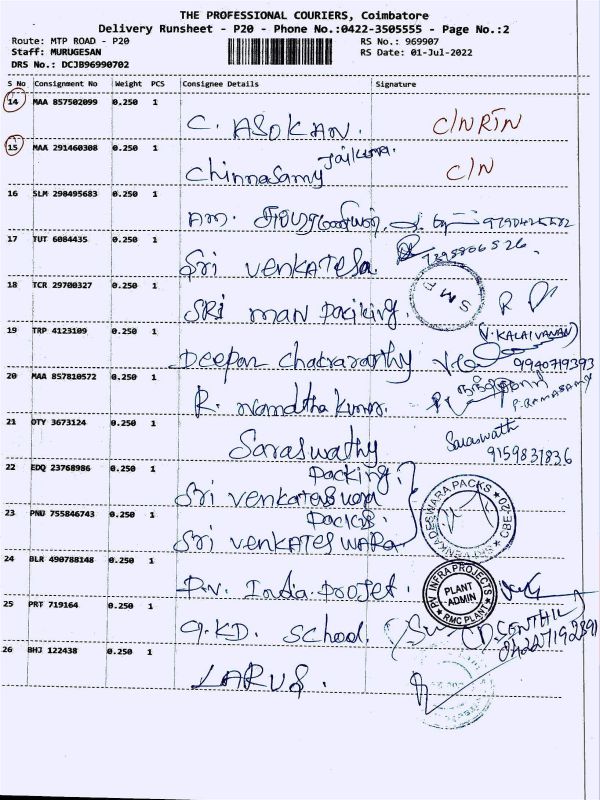 THE PROFESSIONAL COURIERS, Coimbatore
Delivery Runsheet - P20 - Phone No.:0422-3505555 - Page No.:2
Route: MTP ROAD - P20 RS No.: 969907
Staff: MURUGESAN RS Date: 01-Jul-2022
DRS No.: DCJB96990702
S No Consignment No Weight PCS Consignee Details Signature
14 MAA 857502099 0.250 1
C. ASOKAN. C/N RTN
15 MAA 291460308 0.250 1
Chinnasamy Jaikumar. C/N
16 SLM 290495683 0.250 1
Am.
17 TUT 6084435 0.250 1
Sri VENKATESa 7395806526.
18 TCR 29700327 0.250 1 S M P
SRI man Packing.
19 TRP 4123109 0.250 1 (V. KALAIVANAN)
Deepan Chakravarthy 9940719393
20 MAA 857810572 0.250 1
R. Nandtha kumar. P. RAMASAMY
21 OTY 3673124 0.250 1
Saraswathy Saraswath 9159831836
22 EDQ 23768986 0.250 1 Packing.
Sri venkateswara
23 PNU 755846743 0.250 1 Packs.
Sri VENKATESWARA
SRI VENKADESWARA PACKS CBE
24 BLR 490788148 0.250 1
P.V. India Projet.
PV INFRA PROJECTS
PLANT ADMIN
RMC PLANT
25 PRT 719164 0.250 1
G.KD. School.
26 BHJ 122438 0.250 1
LARUS.